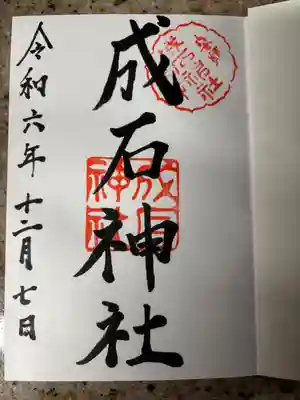 成石神社
令和六年 十二月 七日
成石
神社